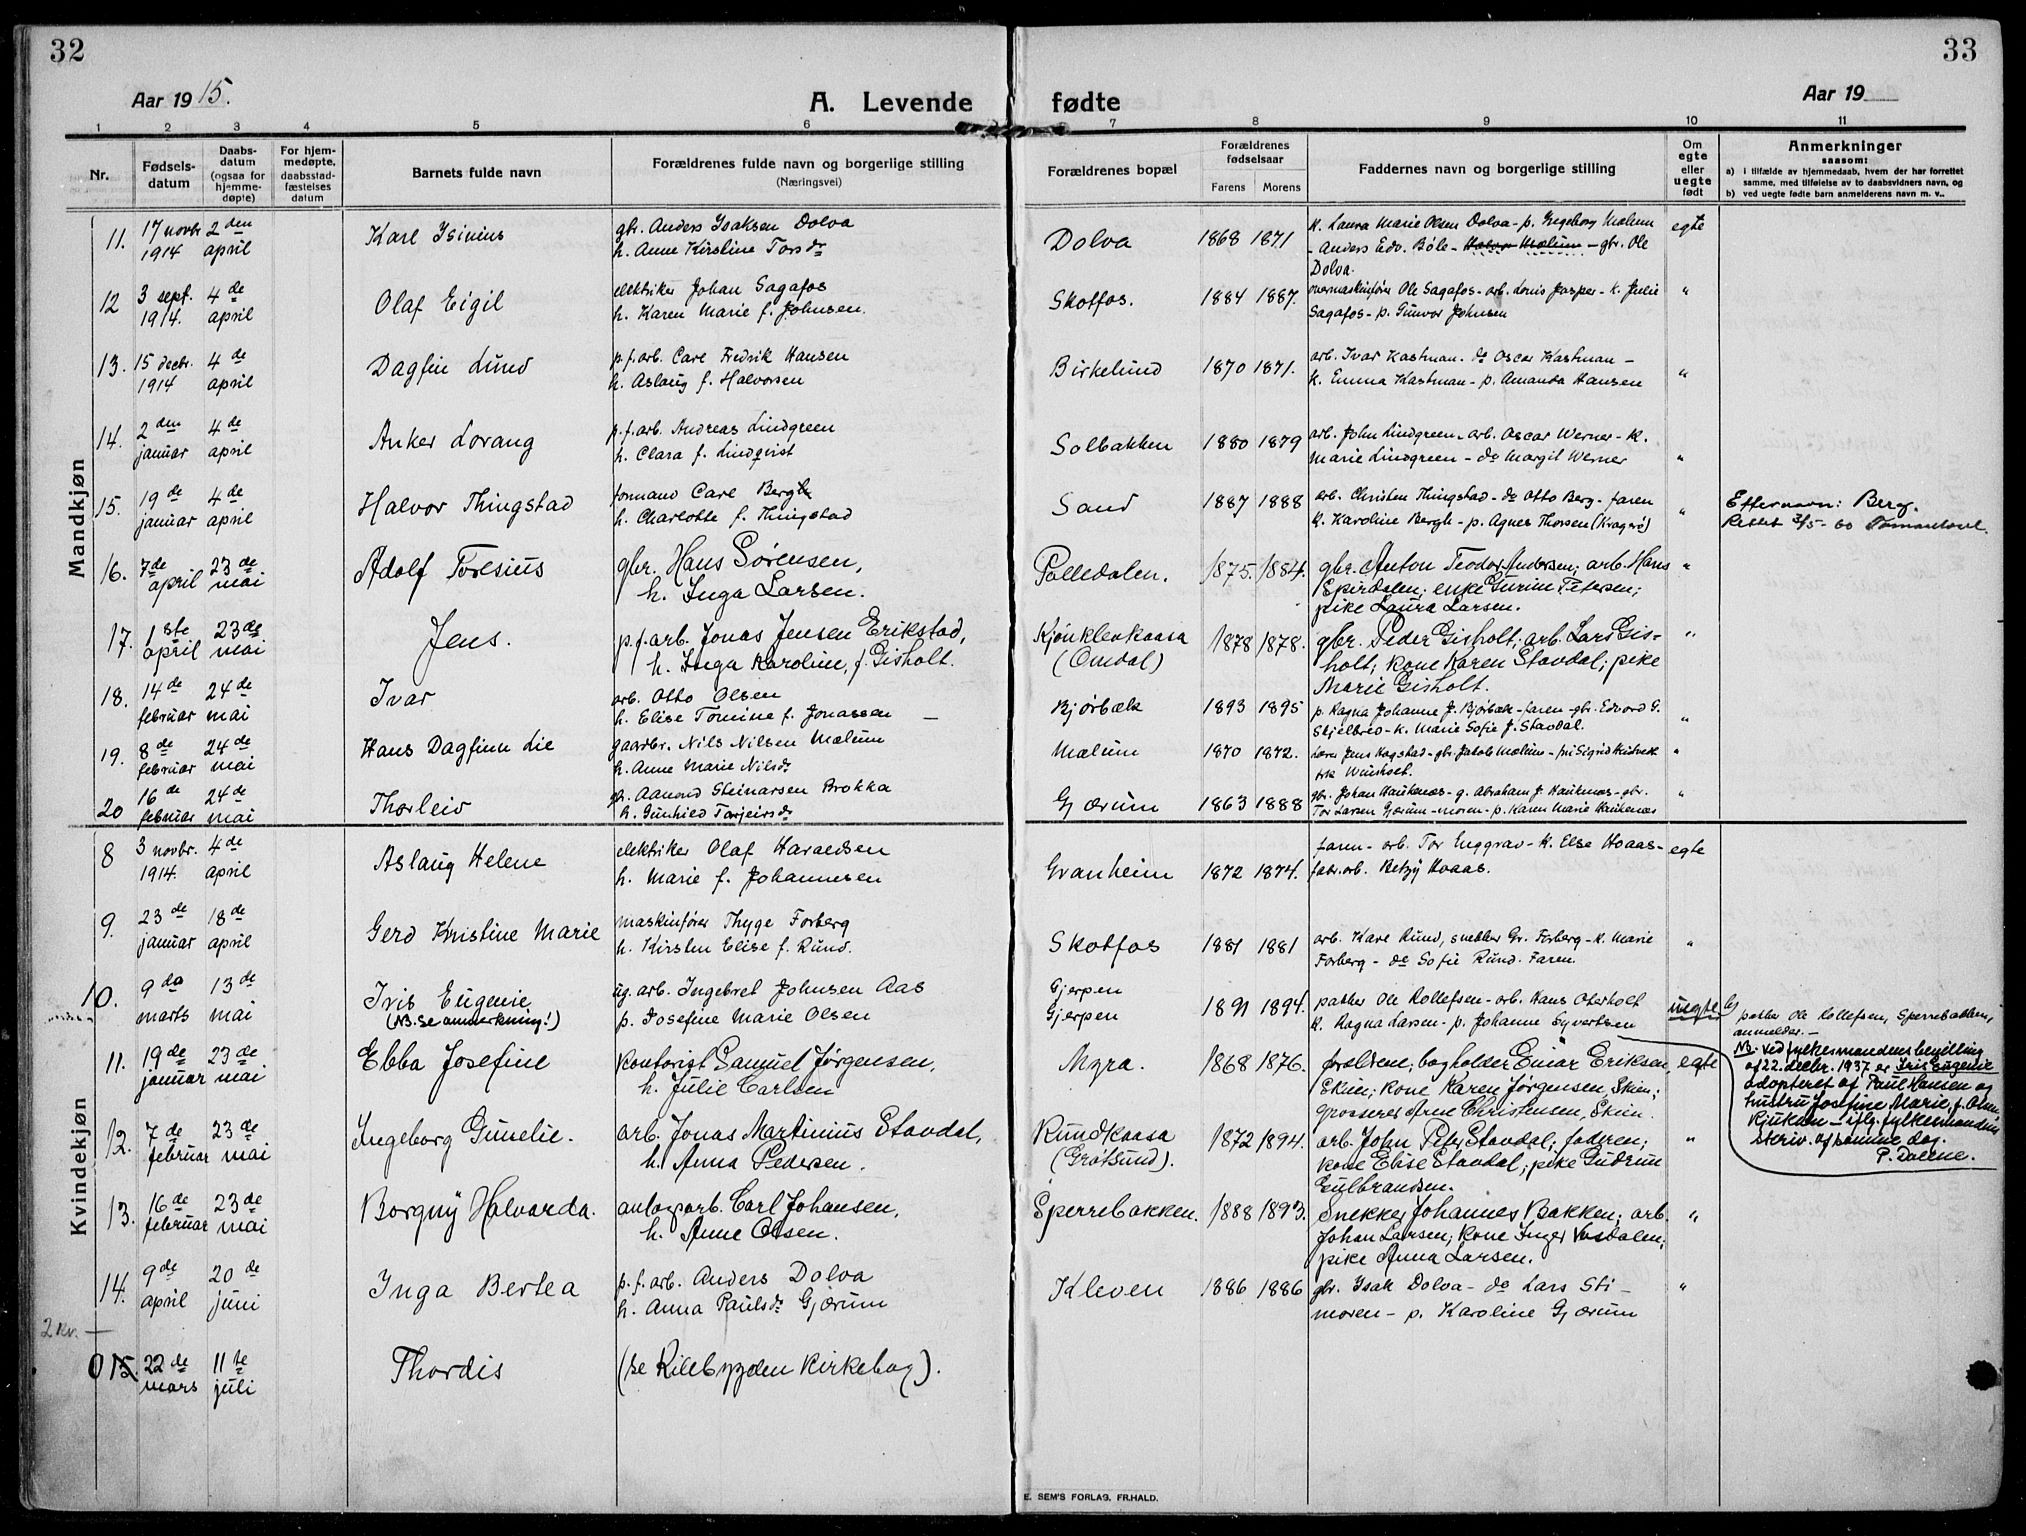 32
33
Aar 1915.
A. Levende fødte
Aar 19
1 2 3 4 5 6 7 8 9 10 11
Nr.
Fødsels-
datum
Daabs-
datum
(ogsaa for
hjemme-
døpte)
For hjem-
medøpte,
daabsstad-
fæstelses
datum
Barnets fulde navn
Forældrenes fulde navn og borgerlige stilling
(Næringsvei)
Forældrenes bopæl
Forældrenes
fødselsaar
Farens Morens
Faddernes navn og borgerlige stilling
Om
egte
eller
uegte
født
Anmerkninger
saasom:
a) i tilfælde av hjemmedaab, hvem der har forrettet
samme, med tilføielse av to daabsvidners navn, og
b) ved uegte fødte barn anmelderens navn m. v..
Mandkjøn
11. 17 novbr. 2den Karl Isinius gbr. Anders Isaksen Dolva Dolva 1868 1871 k. Laura Marie Olsen Dolva - p. Ingeborg Mælum egte
1914 april h. Anne Kirstine Torsdr - Anders Edv. Bøle - Halvor Mælum - gbr. Ole
Dolva.
12 3 sept. 4de Olaf Eigil elektriker Johan Sagafos Skotfos. 1884 1887. overmaskinfører Ole Sagafos - arb. Louis Jasper - k. Julie "
1914. april h. Karen Marie f. Johnsen. Sagafos - p. Gunvor Johnsen
13. 15 decbr. 4de Dagfin Lund p.f.arb. Carl Fredrik Hansen Birkelund 1870 1871. arb. Ivar Kastman. do Oscar Kastman -
1914 april h. Aslaug f. Halvorsen k. Emma Kastman - p. Amanda Hansen "
14. 2den 4de Anker Lorang p.f.arb. Andreas Lindgreen Solbakken 1880 1879 arb. John Lindgreen - arb. Oscar Werner - k.
januar april h. Clara f. Lindqvist Marie Lindgreen - do Margit Werner "
15. 19de 4de Halvor Thingstad formand Carl Bergh Sand 1887 1888 arb. Christen Thingstad - do Otto Berg - faren " Efternavn: Berg.
januar april h. Charlotte f. Thingstad k. Karoline Bergh - p. Agnes Thorsen (Kragerø) Rettet 2/5-60
16. 7de 23de Adolf Toresius gbr. Hans Sørensen, Palledalen. 1875. 1884. gbr. Anton Teodor Andersen; arb. Hans "
april mai h. Inga Larsen. Ekirdalen; enke Gurine Petersen;
pike Laura Larsen.
17. 1ste 23de Jens. p.f.arb. Jonas Jensen Erikstad, Kjønklevkaasa 1878 1878. gbr. Peder Gisholt; arb. Lars Gis- "
april mai h. Inga Karoline, f. Gisholt. (Omdal) holt; kone Karen Stavdal; pike
Marie Gisholt.
18. 14de 24de Ivar arb. Otto Olsen Bjørbæk 1893 1895 p. Ragna Johanne J. Bjørbæk - faren - gbr. Edvard G.
februar mai h. Elise Tomine f. Jonassen - Skjelbred - k. Marie Sofie J. Stavdal. "
19. 8de 24de Hans Dagfinn Lie gaardbr. Nils Nilsen Mælum Mælum 1870 1872. Lærer Jens Kogstad - gbr. Jakob Mælum - frk Sigrid "
februar mai h. Anne Marie Nilsdr
20 16de 24de Thorleiv gbr. Aamund Steinarsen Brokka Gjærum 1863 1888 gbr. Johan Haukenæs - g. Abraham J. Haukenæs - gbr. "
februar mai h. Gunhild Tarjeisdr Tor Larsen Gjærum - moren - p. Karen Marie Haukenæs
Kvindekjøn
8 3 novbr. 4de Aslaug Helene elektriker Olaf Haraldsen Granheim 1872 1874. faren - arb. Tor Enggrav - k. Else Hoaas - egte
1914. april h. Marie f. Johannesen fabr.arb. Betzy Hoaas.
9. 23de 18de Gerd Kristine Marie maskinfører Thyge Forberg Skotfos 1881 1881 arb. Kare Rund, snekker Gr. Forberg - k. Marie "
januar april h. Kirsten Elise f. Rund. Forberg - do Sofie Rund. Faren.
10. 9de 13de Iris Eugenie ug. arb. Ingebret Johnsen Aas Gjerpen 1891 1894. pakker Ole Rollefsen - arb. Hans Oterholt uegte b)
marts mai (NB. Se anmerkning!) p. Josefine Marie Olsen Gjerpen k. Ragna Larsen - p. Johanne Syvertsen
pakker Ole Rollefsen, Sperrebakken,
anmelder. -
NB. Ved fylkesmandens bevilling
af 22. decbr. 1937 er Iris Eugenie
adopteret af Paul Hansen og
hustru Josefine Marie, f. Olsen,
Rjukan - iflg. fylkesmandens
skriv. af samme dag.
P. Dolene.
11. 19de 23de Ebba Josefine kontorist Samuel Jørgensen, Myra. 1868 1876. forældrene; bogholder Einar Eriksen, egte
januar mai h. Julie Carlsen Skien; kone Karen Jørgensen, Skien;
grosserer Arne Christensen, Skien.
12. 7de 23de Ingeborg Gunelie. arb. Jonas Martinius Stavdal, Rundkaasa 1872 1894. arb. John Peter Stavdal; faderen; "
februar mai h. Anna Pedersen. (Grøtsund). kone Elise Stavdal; pike Gudrun
Gulbrandsen.
13. 16de 23de Borgny Halvarda. anlægsarb. Carl Johansen, Sperrebakken. 1888 1893. Snekker Johannes Bakken; arb. "
februar mai h. Anne Olsen. Johan Larsen; kone Inger Vasdalen;
pike Anna Larsen.
14. 9de 20de Inga Bertea p.f.arb. Anders Dolva Kleven 1886 1886 gbr. Isak Dolva - do Lars Sti - "
april juni h. Anna Paulsdr Gjærum moren - p. Karoline Gjærum
2 kv. -
0 15. 22de 11te Thordis (se Kilebygden Kirkebog).
mars juli
E. SEM'S FORLAG, FR.HALD.